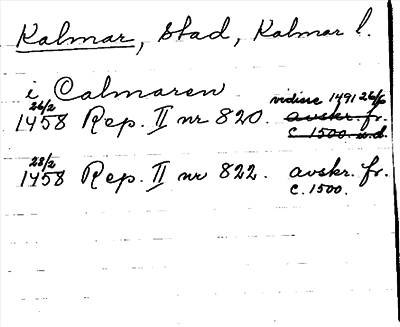 Kalmar, stad, Kalmar l.
i Calmaren
26/2 vidisse 1491 26/6
1458 Rep. II nr 820. avskr. fr.
c. 1500. u.d.
28/2
1458 Rep. II nr 822. avskr. fr.
c. 1500.